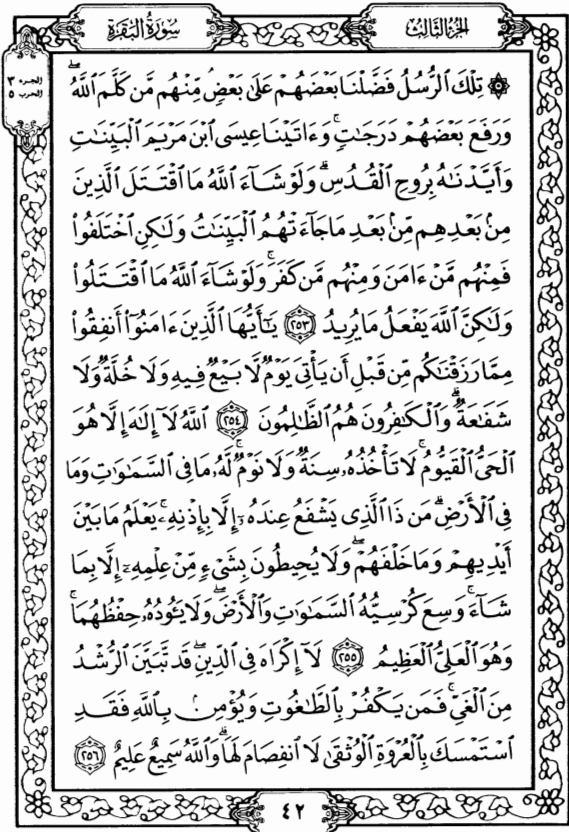 سُورَةُ البَقَرَةِ
الجزء الثالث
الجزء ٣
الحزب ٥
۞ تِلْكَ ٱلرُّسُلُ فَضَّلْنَا بَعْضَهُمْ عَلَىٰ بَعْضٍ مِّنْهُم مَّن كَلَّمَ ٱللَّهُ ۖ
وَرَفَعَ بَعْضَهُمْ دَرَجَـٰتٍ ۚ وَءَاتَيْنَا عِيسَى ٱبْنَ مَرْيَمَ ٱلْبَيِّنَـٰتِ
وَأَيَّدْنَـٰهُ بِرُوحِ ٱلْقُدُسِ ۗ وَلَوْ شَآءَ ٱللَّهُ مَا ٱقْتَتَلَ ٱلَّذِينَ
مِنۢ بَعْدِهِم مِّنۢ بَعْدِ مَا جَآءَتْهُمُ ٱلْبَيِّنَـٰتُ وَلَـٰكِنِ ٱخْتَلَفُوا۟
فَمِنْهُم مَّنْ ءَامَنَ وَمِنْهُم مَّن كَفَرَ ۚ وَلَوْ شَآءَ ٱللَّهُ مَا ٱقْتَتَلُوا۟
وَلَـٰكِنَّ ٱللَّهَ يَفْعَلُ مَا يُرِيدُ ٢٥٣ يَـٰٓأَيُّهَا ٱلَّذِينَ ءَامَنُوٓا۟ أَنفِقُوا۟
مِمَّا رَزَقْنَـٰكُم مِّن قَبْلِ أَن يَأْتِىَ يَوْمٌ لَّا بَيْعٌ فِيهِ وَلَا خُلَّةٌ وَلَا
شَفَـٰعَةٌ ۗ وَٱلْكَـٰفِرُونَ هُمُ ٱلظَّـٰلِمُونَ ٢٥٤ ٱللَّهُ لَآ إِلَـٰهَ إِلَّا هُوَ
ٱلْحَىُّ ٱلْقَيُّومُ ۚ لَا تَأْخُذُهُۥ سِنَةٌ وَلَا نَوْمٌ ۚ لَّهُۥ مَا فِى ٱلسَّمَـٰوَٰتِ وَمَا
فِى ٱلْأَرْضِ ۗ مَن ذَا ٱلَّذِى يَشْفَعُ عِندَهُۥٓ إِلَّا بِإِذْنِهِۦ ۚ يَعْلَمُ مَا بَيْنَ
أَيْدِيهِمْ وَمَا خَلْفَهُمْ ۖ وَلَا يُحِيطُونَ بِشَىْءٍ مِّنْ عِلْمِهِۦٓ إِلَّا بِمَا
شَآءَ ۚ وَسِعَ كُرْسِيُّهُ ٱلسَّمَـٰوَٰتِ وَٱلْأَرْضَ ۖ وَلَا يَـُٔودُهُۥ حِفْظُهُمَا ۚ
وَهُوَ ٱلْعَلِىُّ ٱلْعَظِيمُ ٢٥٥ لَآ إِكْرَاهَ فِى ٱلدِّينِ ۖ قَد تَّبَيَّنَ ٱلرُّشْدُ
مِنَ ٱلْغَىِّ ۚ فَمَن يَكْفُرْ بِٱلطَّـٰغُوتِ وَيُؤْمِنۢ بِٱللَّهِ فَقَدِ
ٱسْتَمْسَكَ بِٱلْعُرْوَةِ ٱلْوُثْقَىٰ لَا ٱنفِصَامَ لَهَا ۗ وَٱللَّهُ سَمِيعٌ عَلِيمٌ ٢٥٦
٤٢